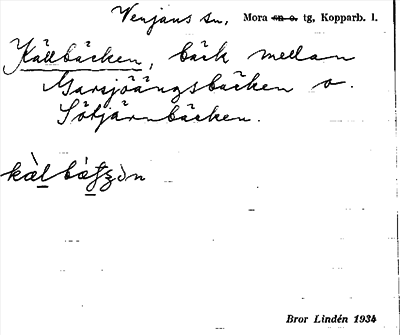 Venjans sn, Mora sn o. tg, Kopparb. l.
Källbäcken, bäck mellan
Marsjöängsbäcken o.
Sötjärnbäcken.
Bror Lindén 1934